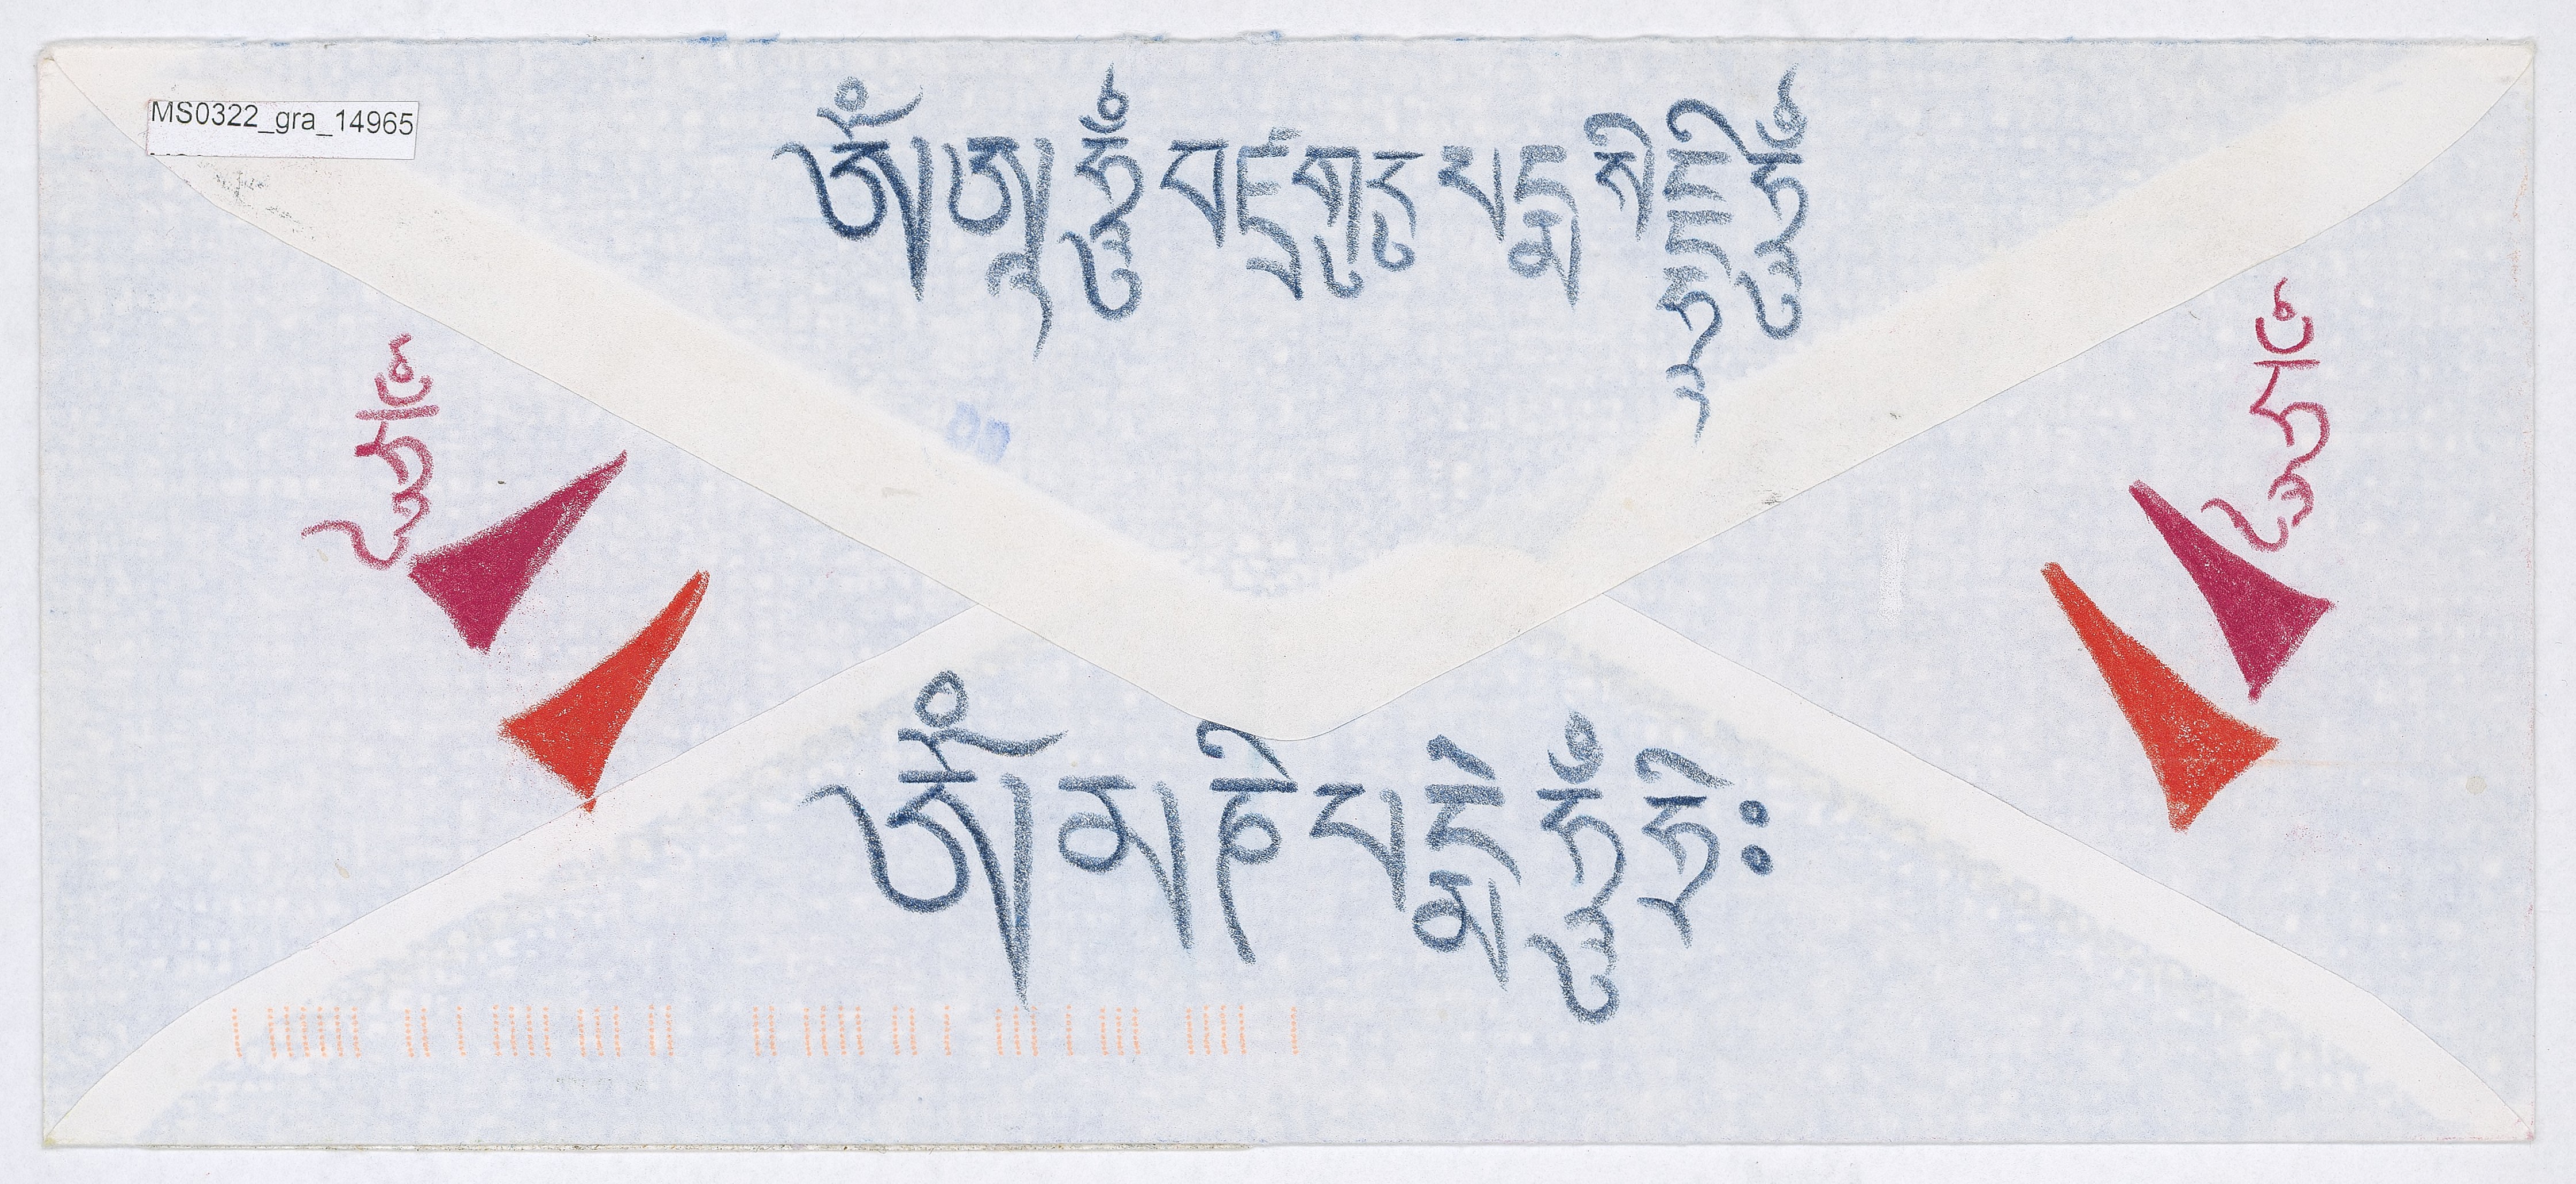 MS0322_gra_14965
ཨོཾ་ཨཱཿཧཱུྃ་བཛྲ་གུ་རུ་པདྨ་སིདྡྷི་ཧཱུྃ
ཧཱུྃ
ཧཱུྃ
ༀ མ ཎི པ དྨེ ཧཱུྃ ཧྲིཿ